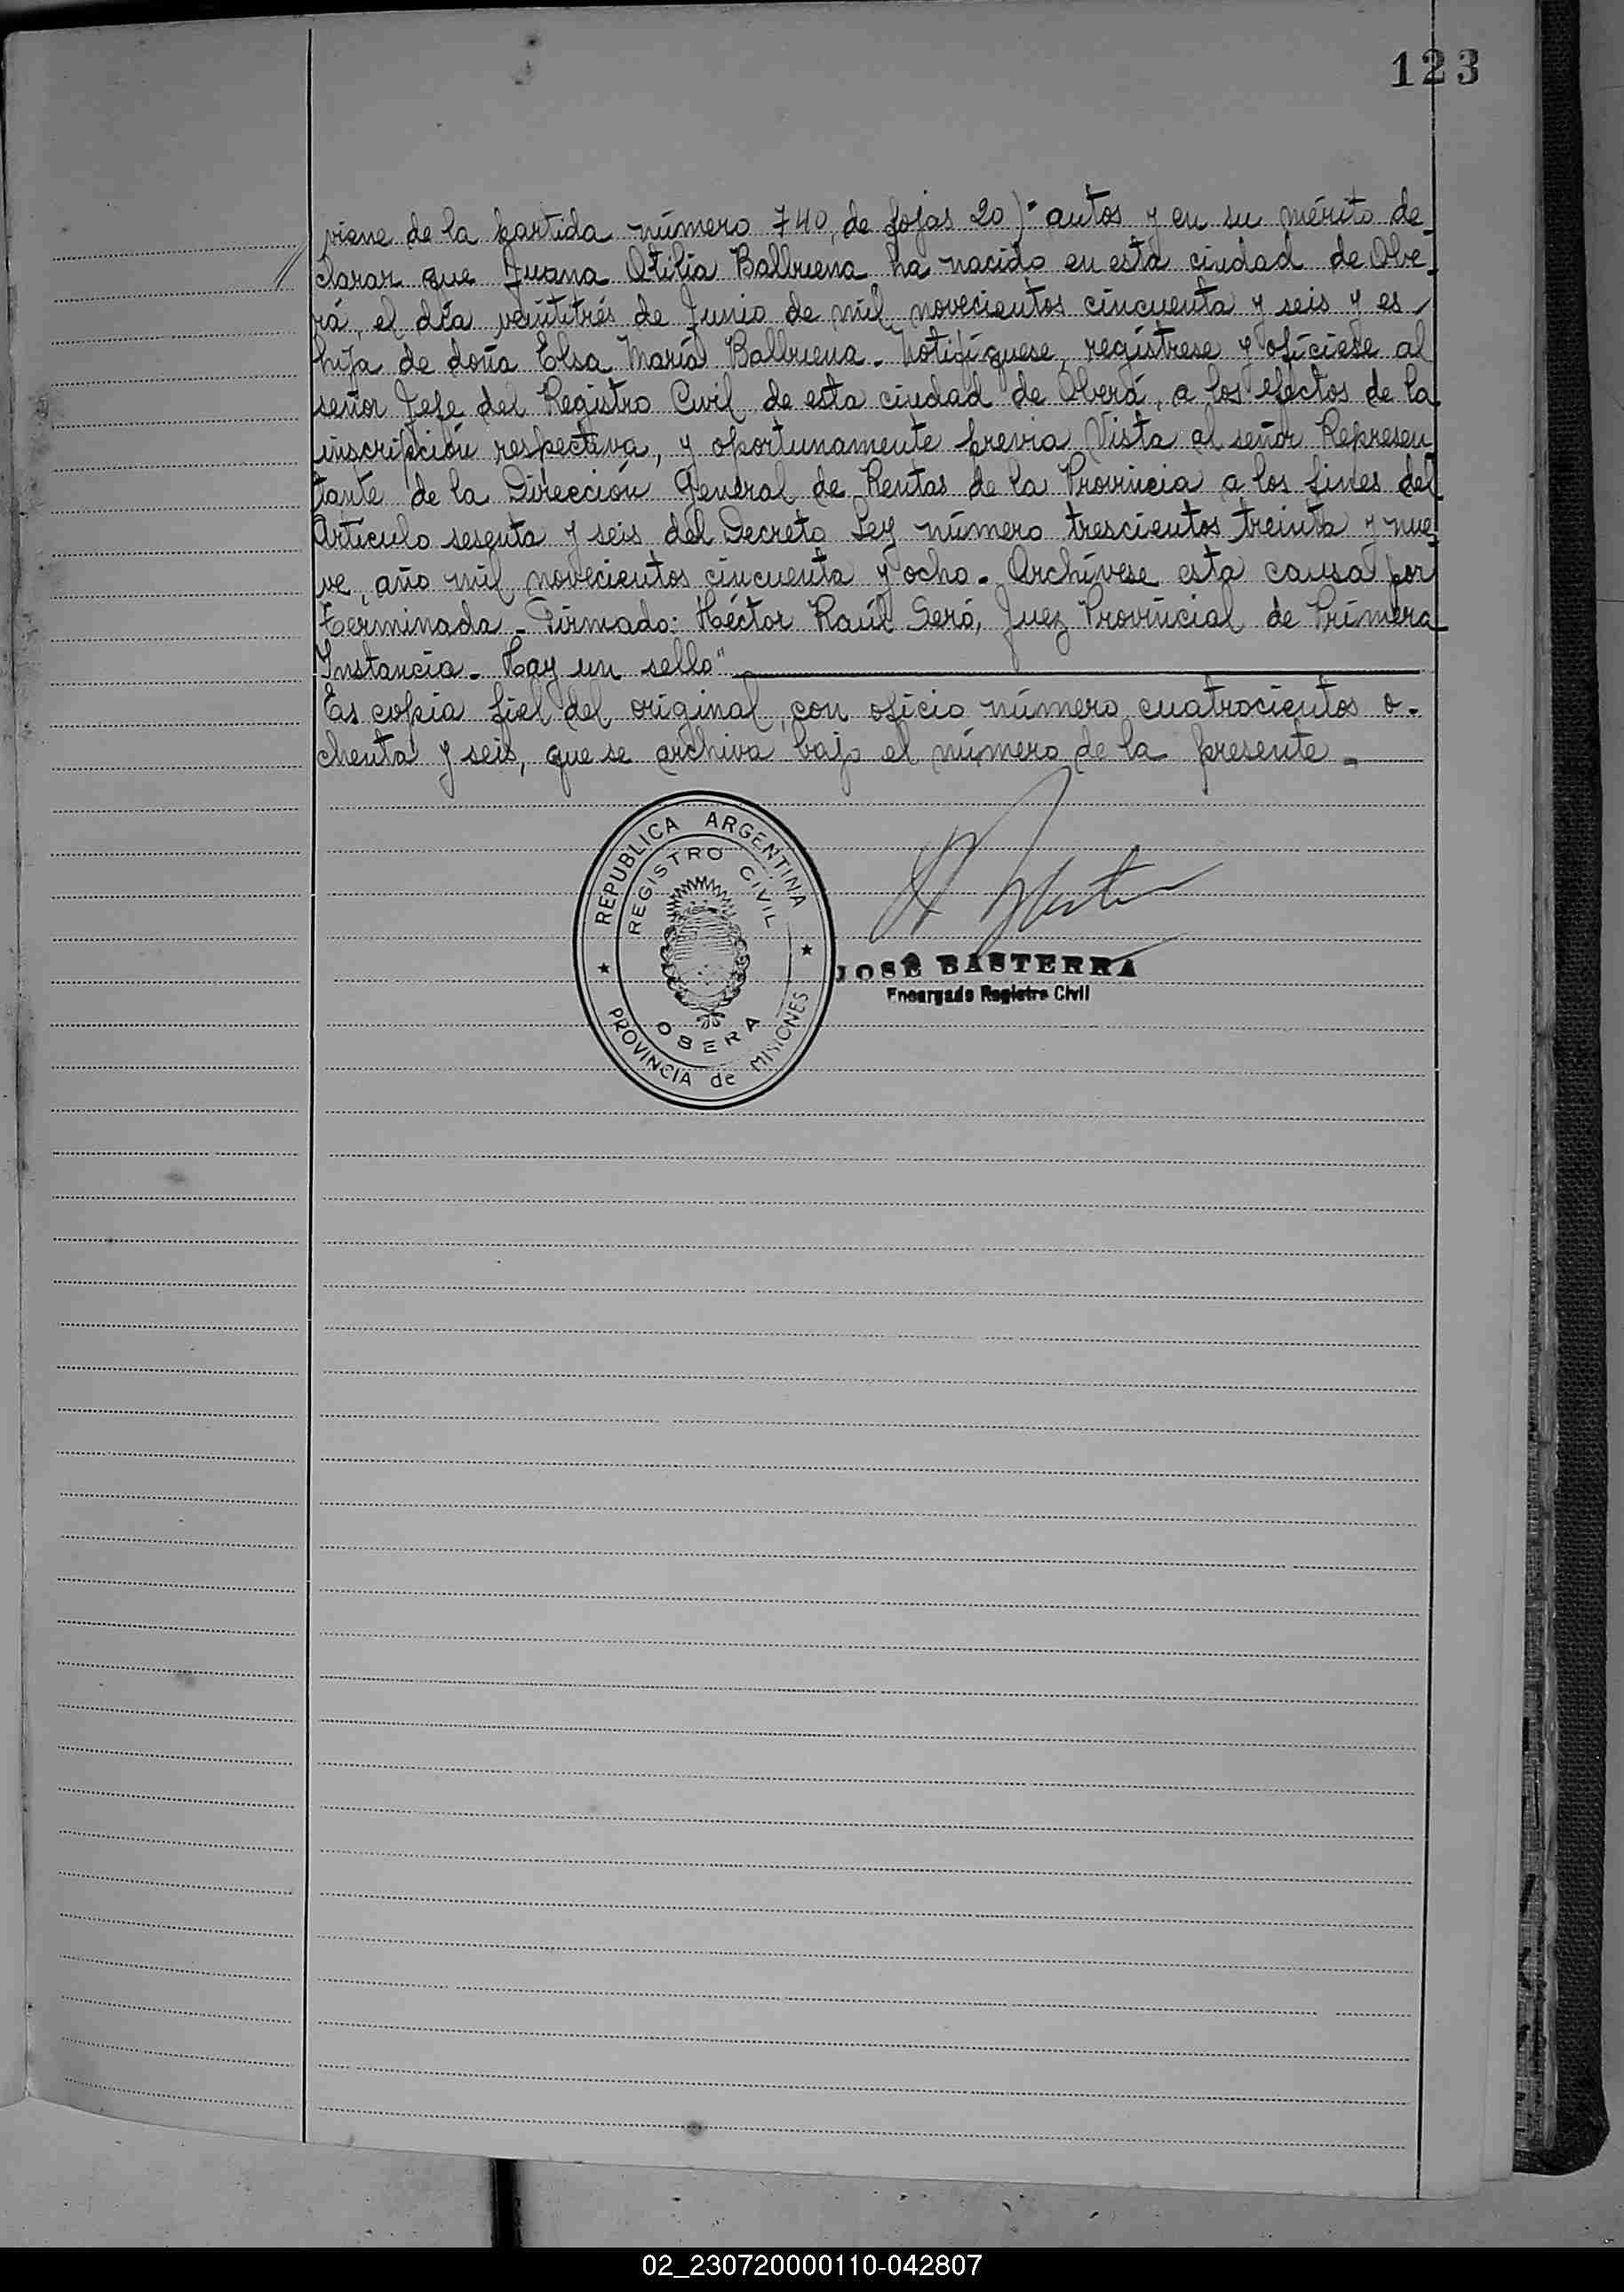 123
viene de la partida número 740, de fojas 20)" autos y en su mérito de-
// clarar que Juana Otilia Balbuena ha nacido en esta ciudad de Obe-
rá, el día veintitrés de Junio de mil novecientos cincuenta y seis y es
hija de doña Elsa María Balbuena. Notifíquese, regístrese y ofíciese al
señor Jefe del Registro Civil de esta ciudad de Oberá, a los efectos de la
inscripción respectiva, y oportunamente previa Vista al señor Represen
tante de la Dirección General de Rentas de la Provincia a los fines del
Artículo sesenta y seis del Decreto Ley número trescientos treinta y nue-
ve, año mil novecientos cincuenta y ocho. Archívese esta causa por
Terminada. Firmado: Héctor Raúl Seró, Juez Provincial de Primera
Instancia. Hay un sello"
Es copia fiel del original, con oficio número cuatrocientos o-
chenta y seis, que se archiva bajo el número de la presente.
REPUBLICA ARGENTINA
REGISTRO CIVIL
OBERA
PROVINCIA de MISIONES
JOSÉ BASTERRA
Encargado Registro Civil
02_230720000110-042807